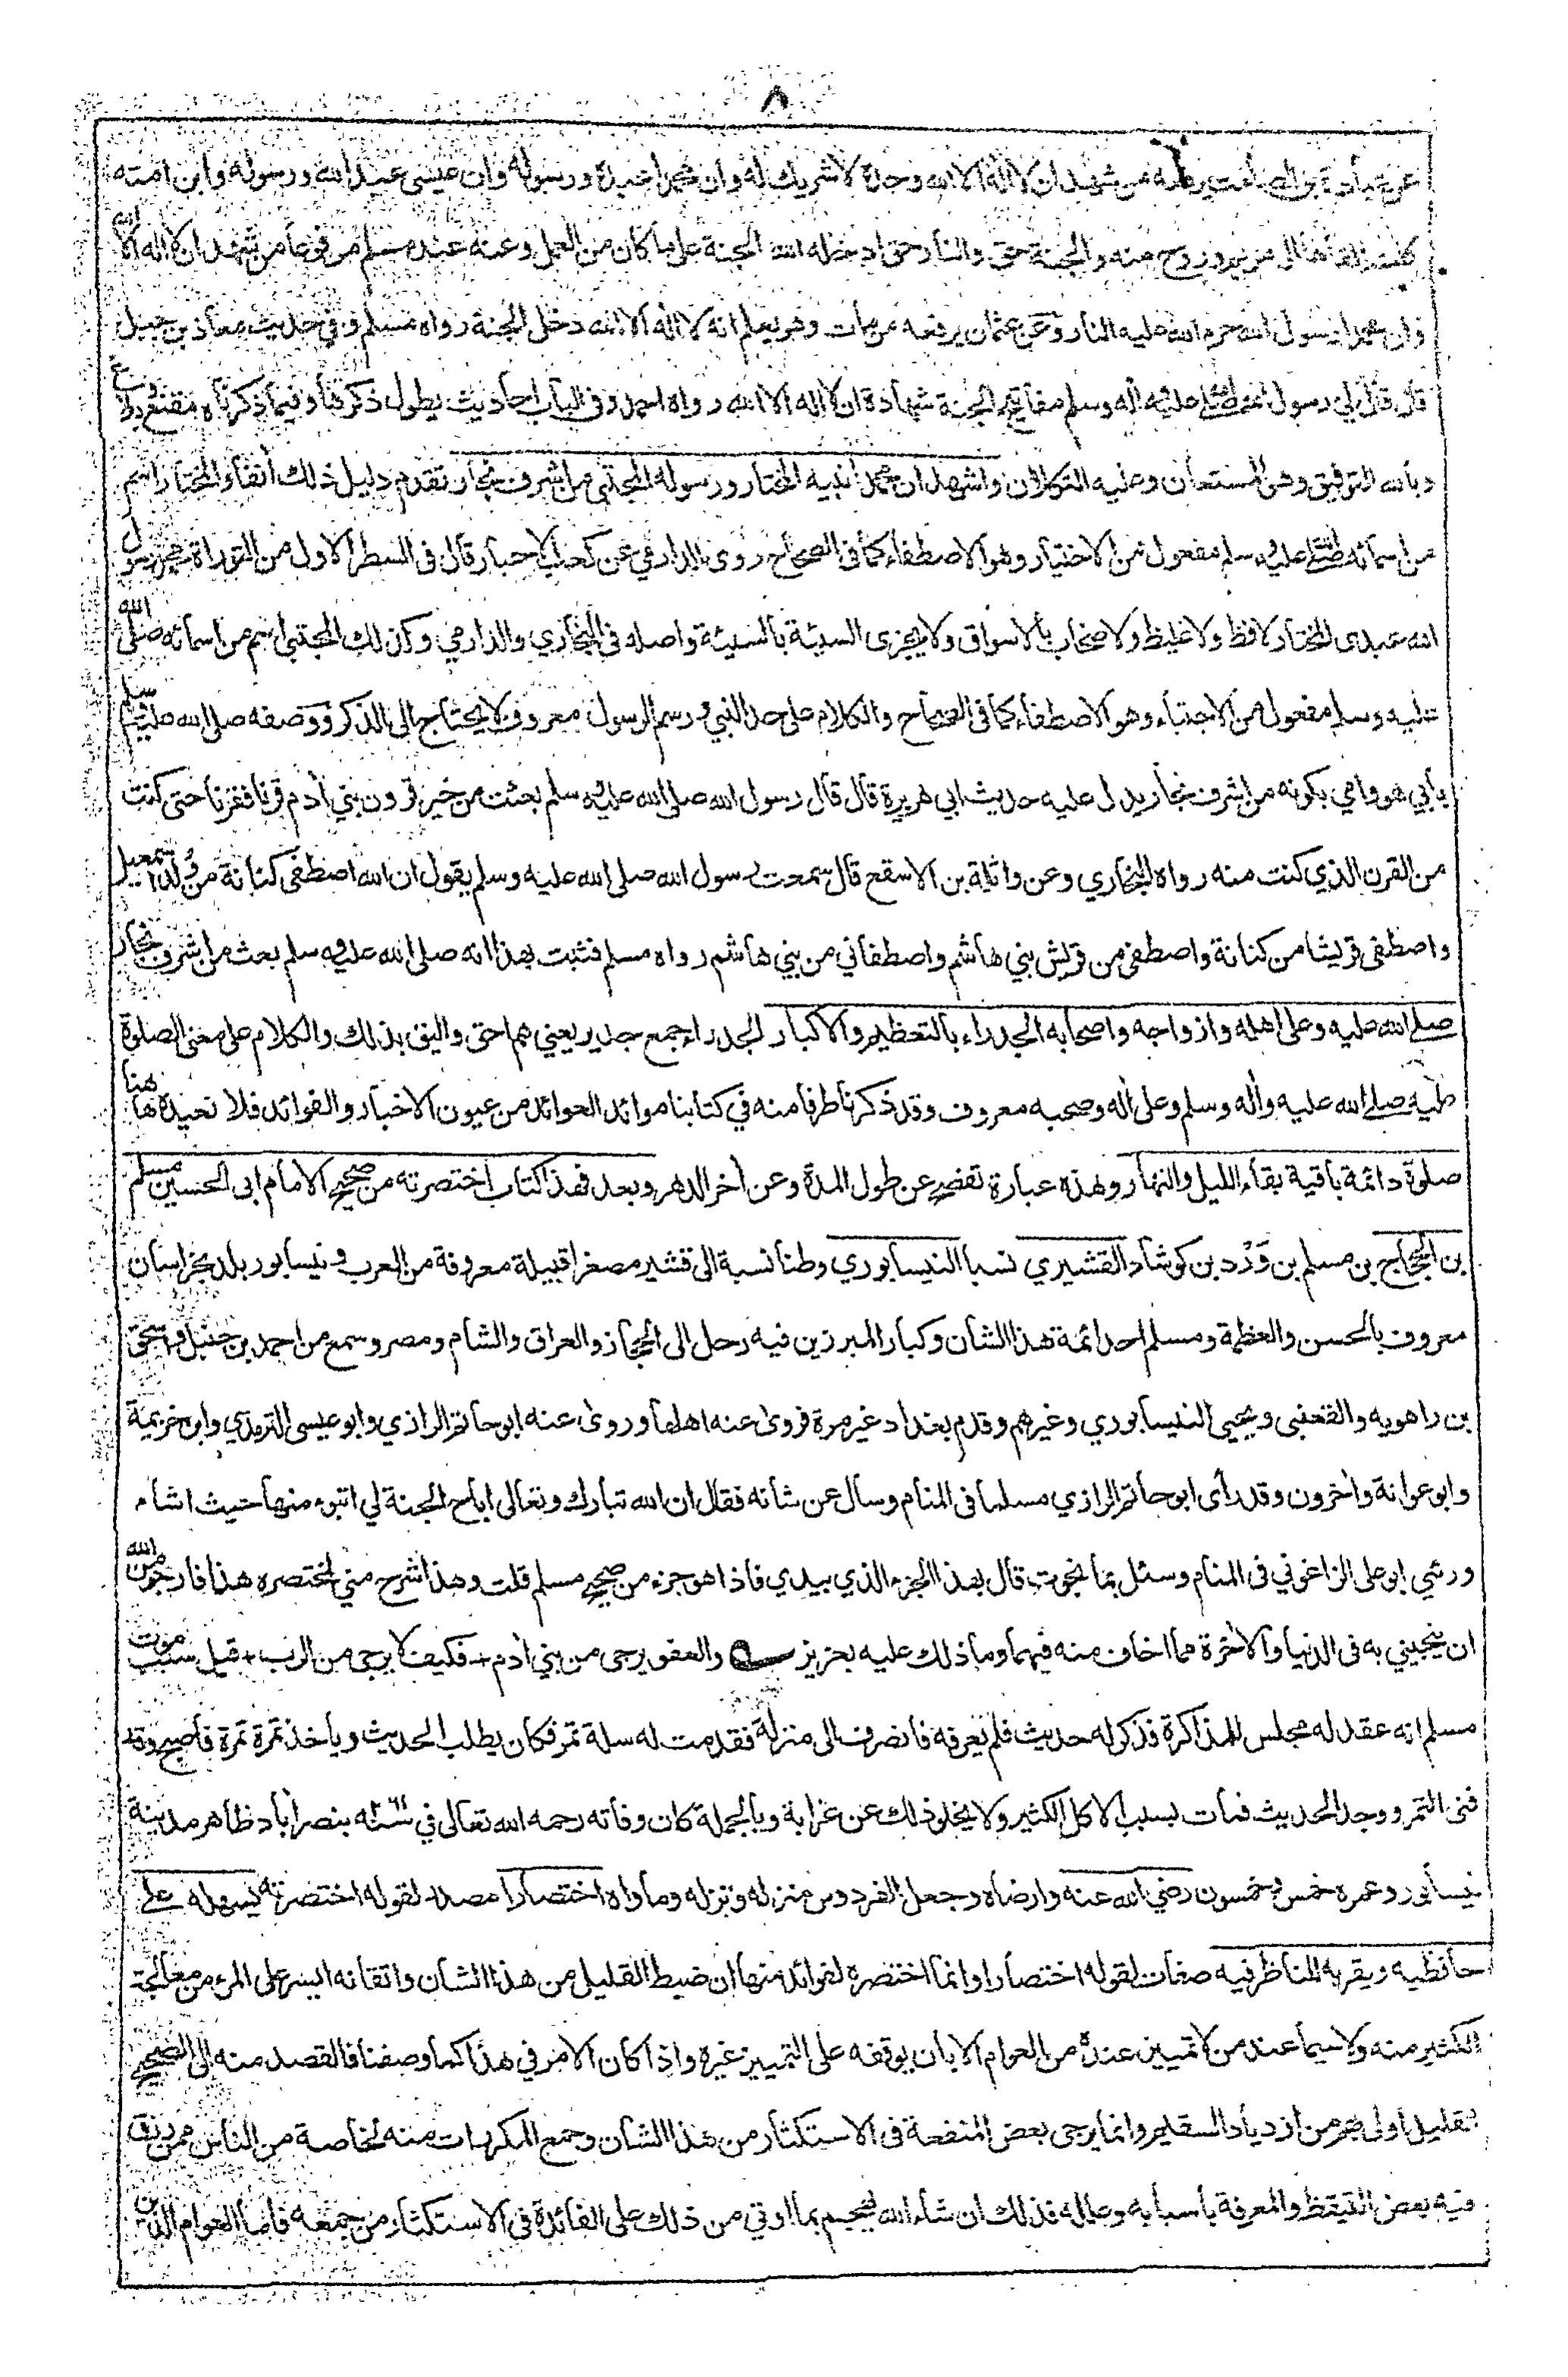 ٨
عن عبادة بن الصامت يرفعه من شهد ان لا اله الا الله وحدة لا شريك له وان محمدا عبدة ورسوله وان عيسى عبد الله ورسوله وابن امته
كلمته القاها الى مريم وروح منه والجنة حق والنار حق ادخله الله الجنة على ما كان من العمل وعنه عند مسلم مرفوعا من شهد ان لا اله الا الله
وان محمدا رسول الله حرم الله عليه النار وعن عثمان يرفعه من مات وهو يعلم انه لا اله الا الله دخل الجنة رواه مسلم وفي حديث معاذ بن جبل
قال قال لي رسول الله صلى الله عليه وآله وسلم مفاتيح الجنة شهادة ان لا اله الا الله رواه احمد وفي الباب احاديث يطول ذكرها وفيما ذكرناه مقنع وبلاغ
وبالله التوفيق وهو المستعان وعليه التكلان واشهد ان محمدا نبيه المختار ورسوله المجتبى من اشرف نجار تقدم دليل ذلك أنفا والمختار اسم
من اسمائه صلى الله عليه وسلم مفعول من الاختيار وهو الاصطفاء كما في الصحاح روى الدارمي عن كعب الاحبار قال في السطر الاول من التوراة محمد رسول
الله عبدى المختار لا فظ ولا غليظ ولا صخاب بالاسواق ولا يجزى السيئة بالسيئة واصله في البخاري والدارمي وكذلك المجتبى اسم من اسمائه صلى الله
عليه وسلم مفعول من الاجتباء وهو الاصطفاء كما في الصحاح والكلام على حد النبي ورسم الرسول معروف لا يحتاج الى الذكر ووصفه صلى الله عليه وسلم
بأبي هو وامي بكونه من اشرف نجار يدل عليه حديث ابي هريرة قال قال رسول الله صلى الله عليه وسلم بعثت من خير قرون بني أدم قرنا فقرنا حتى كنت
من القرن الذي كنت منه رواه البخاري وعن واثلة بن الاسقع قال سمعت رسول الله صلى الله عليه وسلم يقول ان الله اصطفى كنانة من ولد اسمعيل
واصطفى قريشا من كنانة واصطفى من قريش بني هاشم واصطفاني من بني هاشم رواه مسلم فثبت بهذا انه صلى الله عليه وسلم بعث من اشرف نجار
صلى الله عليه وعلى اهله وازواجه واصحابه الجدراء بالتعظيم والاكبار الجدراء جمع جدير يعني هم احق واليق بذلك والكلام على معنى الصلوة
عليه صلى الله عليه وأله وسلم وعلى أله وصحبه معروف وقد ذكرنا طرفا منه في كتابنا موائد العوائد من عيون الاخبار والفوائد فلا نعيدة هاهنا
صلوة دائمة باقية بقاء الليل والنهار وهذه عبارة تفصح عن طول المدة وعن أخر الدهر وبعد فهذا كتاب اختصرته من صحيح الامام ابى الحسين مسلم
بن الحجاج بن مسلم بن وَرْد بن كوشاد القشيري نسبا النيسابوري وطنا نسبة الى قشير مصغرا قبيلة معروفة من العرب ونيسابور بلد بخراسان
معروف بالحسن والعظمة ومسلم احد ائمة هذا الشان وكبار المبرزين فيه رحل الى الحجاز والعراق والشام ومصر وسمع من احمد بن حنبل واسحق
بن راهويه والقعنبى ويحيى النيسابوري وغيرهم وقدم بغداد غير مرة فروى عنه اهلها وروى عنه ابو حاتم الرازي وابو عيسى الترمذي وابن خزيمة
وابو عوانة وأخرون وقد رأى ابو حاتم الرازي مسلما فى المنام وسأل عن شانه فقال ان الله تبارك وتعالى اباح الجنة لي اتبوء منها حيث اشاء
ورئي ابو على الزاغوني فى المنام وسئل بما نجوت قال بهذا الجزء الذي بيدي فاذا هو جزء من صحيح مسلم قلت وهذا شرح مني لمختصره هذا فارجو من الله
ان ينجيني به فى الدنيا والاخرة مما اخاف منه فيهما وما ذلك عليه بعزيز والعفو يرجى من بني أدم + فكيف لا يرجى من الرب + قيل سبب موت
مسلم انه عقد له مجلس للمذاكرة فذكر له حديث فلم يعرفه فانصرف الى منزله فقدمت له سلة تمر فكان يطلب الحديث وياخذ تمرة تمرة فاصبح وقد
فنى التمر ووجد الحديث فمات بسبب الاكل الكثير ولا يخلو ذلك عن غرابة وبالجملة كان وفاته رحمه الله تعالى في سنة ٢٦١ بنصراباد ظاهر مدينة
نيسابور وعمره خمس وخمسون رضي الله عنه وارضاه وجعل الفردوس منزله ونزله وماواه اختصارا مصدر لقوله اختصرته يسهله على
حافظيه ويقربه للناظر فيه صفات لقوله اختصارا وانما اختصره لفوائد منها ان ضبط القليل من هذا الشان واتقانه ايسر على المرء من معالجة
الكثير منه ولا سيما عند من لا تمييز عنده من العوام الا بان يوقفه على التمييز غيره واذا كان الامر في هذا كما وصفنا فالقصد منه الى الصحيح
القليل اولى بهم من ازدياد السقيم وانما يرجى بعض المنفعة فى الاستكثار من هذا الشان وجمع المكررات منه لخاصة من الناس ممن رزق
فيه بعض التيقظ والمعرفة باسبابه وعلله فذلك ان شاء الله يهجم بما اوتي من ذلك على الفائدة فى الاستكثار من جمعه فاما العوام الذين